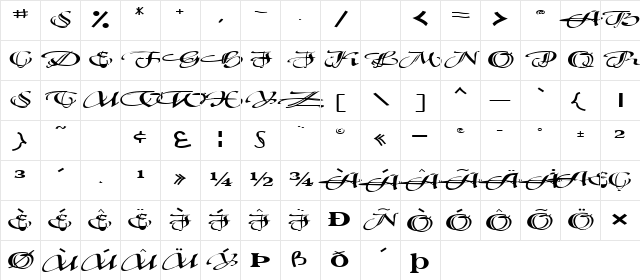 # $ % * + , - . / < = > @ A B
C D E F G H I J K L M N O P Q R
S T U V W X Y Z [ \ ] ^ — ` { |
} ~ ¢ ¦ § ¨ © « – ® - ° ± ²
³ ´ · ¹ » ¼ ½ ¾ À Á Â Ã Ä Å Æ Ç
È É Ê Ë Ì Í Î Ï Ð Ñ Ò Ó Ô Õ Ö ×
Ø Ù Ú Û Ü Ý Þ ß ð þ